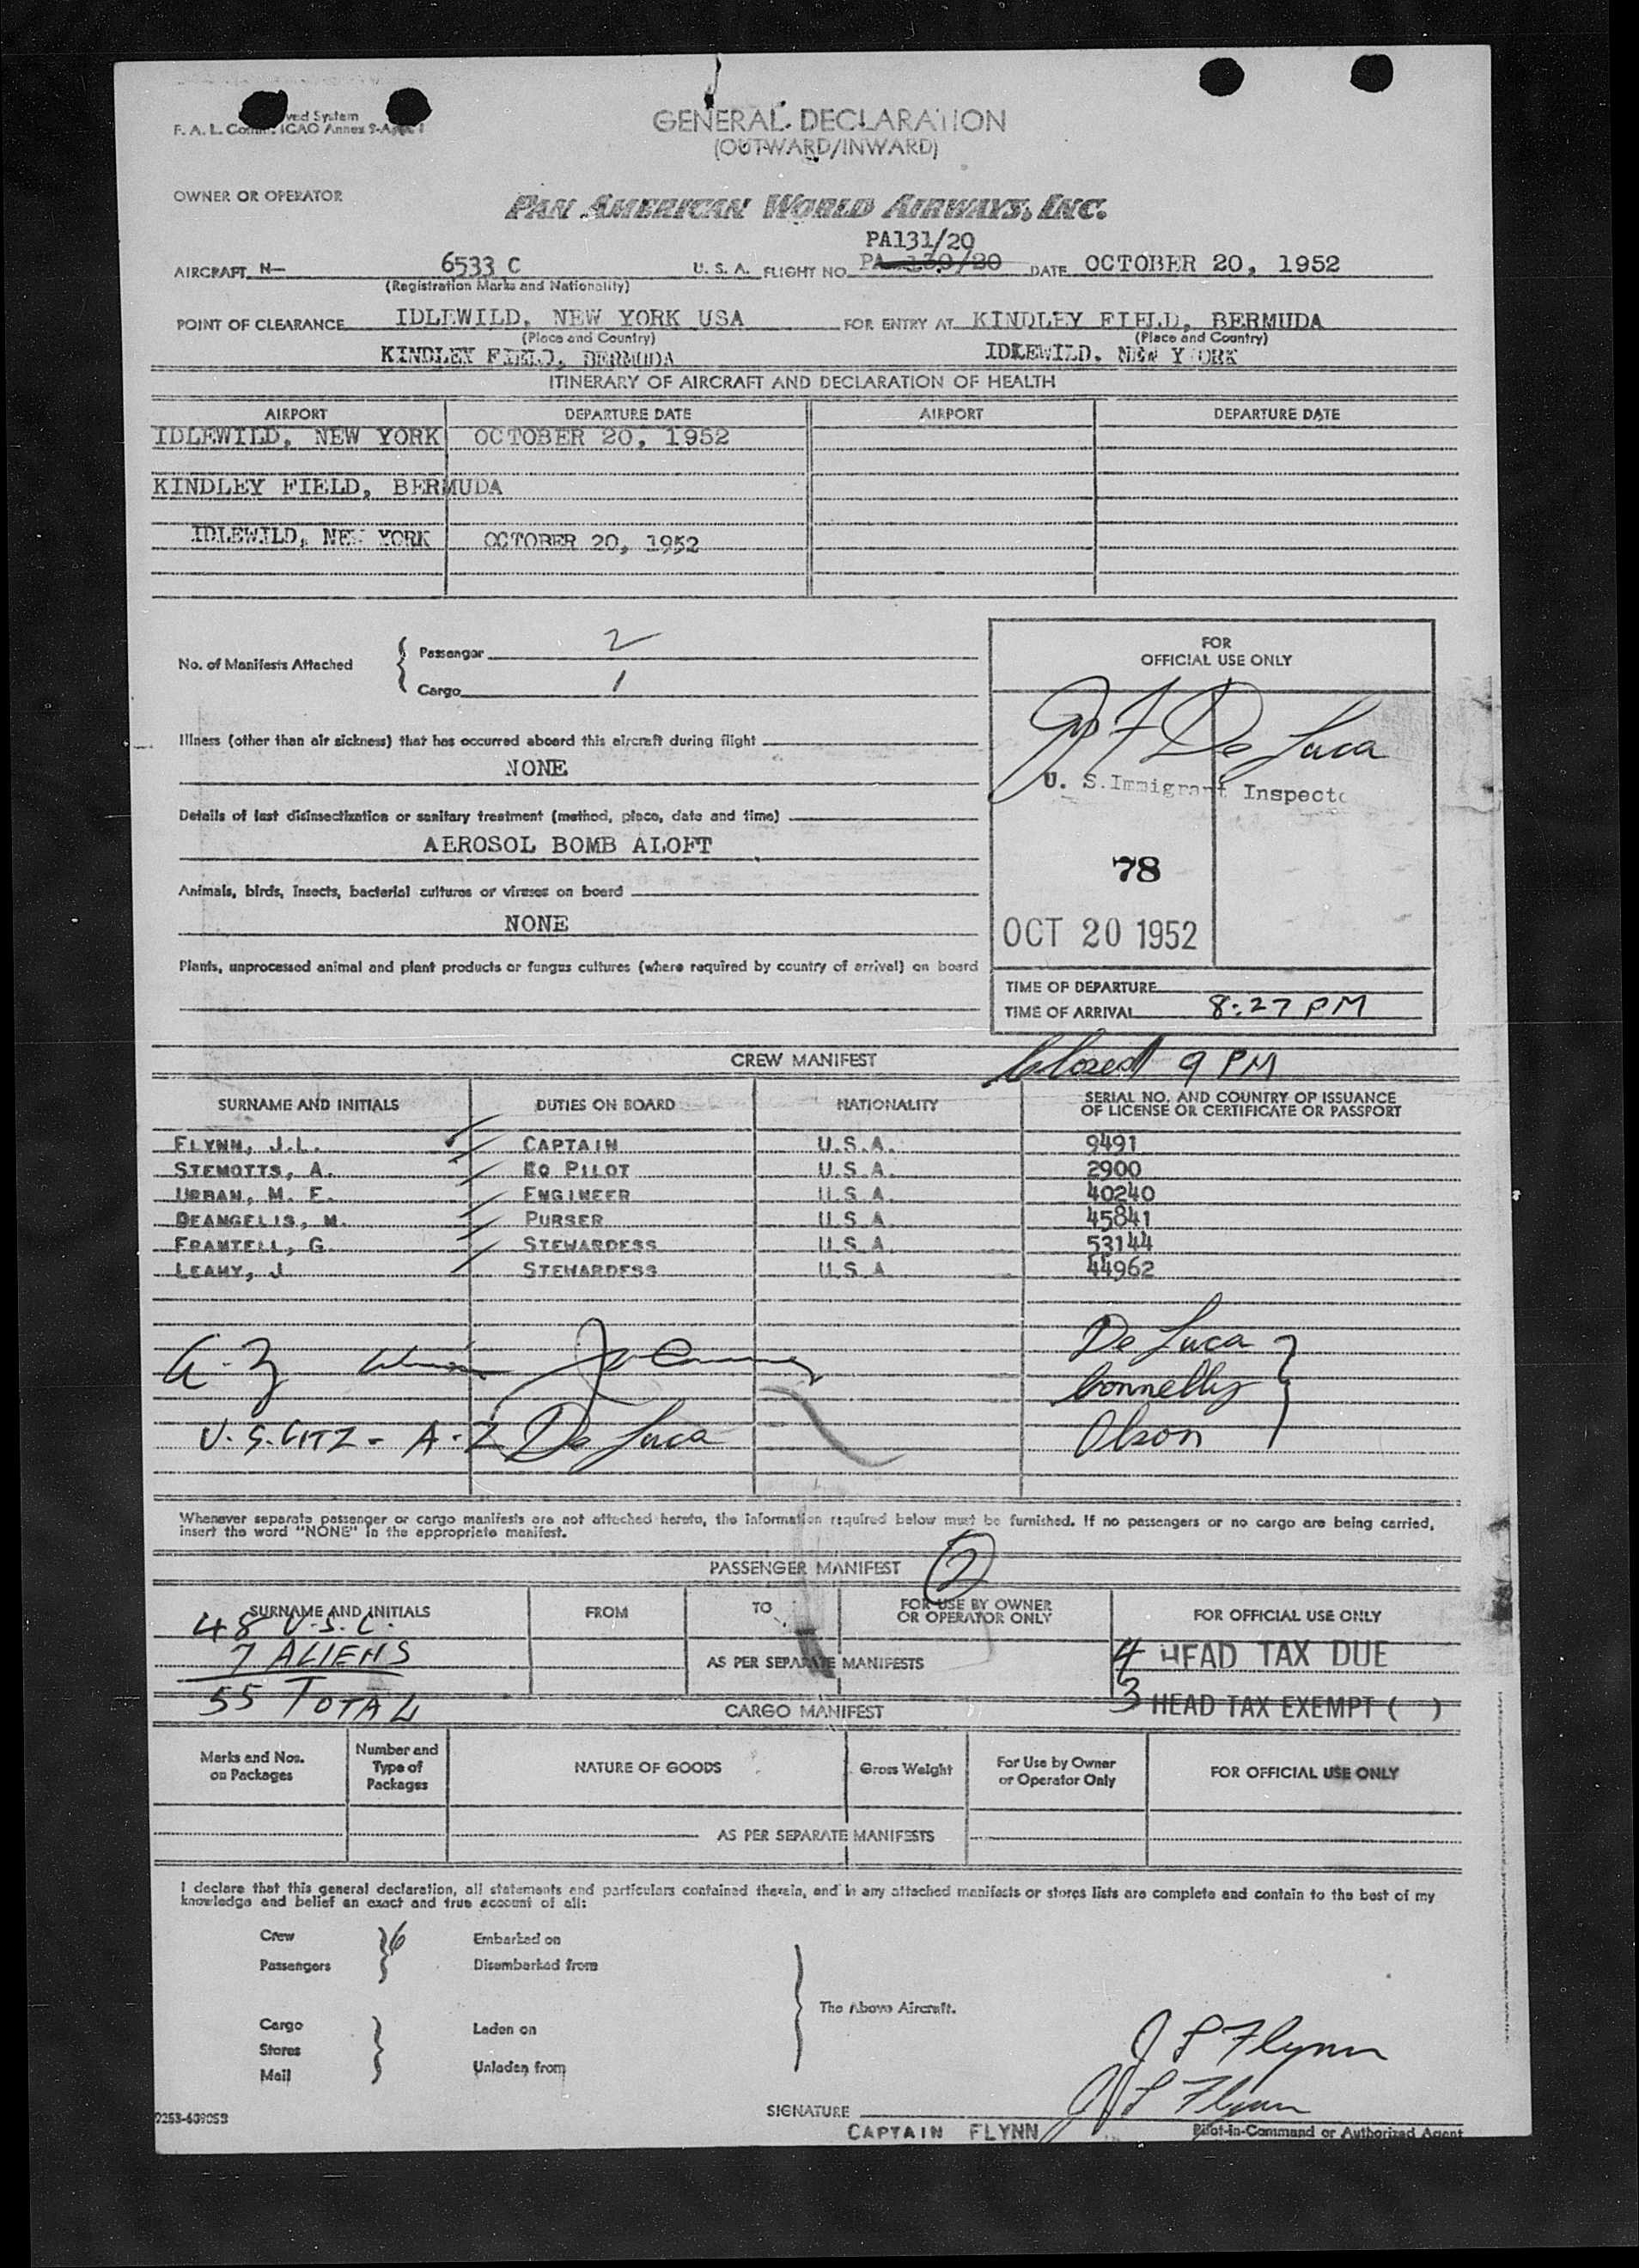 ved System
F. A. L. Comm. ICAO Annex 9-App. 1
GENERAL DECLARATION
(OUTWARD/INWARD)
OWNER OR OPERATOR
PAN AMERICAN WORLD AIRWAYS, INC.
PA131/20
AIRCRAFT N- 6533 C U. S. A. FLIGHT NO. PA 130/20 DATE OCTOBER 20, 1952
(Registration Marks and Nationality)
POINT OF CLEARANCE IDLEWILD, NEW YORK USA FOR ENTRY AT KINDLEY FIELD, BERMUDA
(Place and Country) (Place and Country)
KINDLEY FIELD, BERMUDA IDLEWILD, NEW YORK
ITINERARY OF AIRCRAFT AND DECLARATION OF HEALTH
AIRPORT DEPARTURE DATE AIRPORT DEPARTURE DATE
IDLEWILD, NEW YORK OCTOBER 20, 1952
KINDLEY FIELD, BERMUDA
IDLEWILD, NEW YORK OCTOBER 20, 1952
No. of Manifests Attached
Passenger 2
Cargo 1
FOR
OFFICIAL USE ONLY
De Luca
U. S. Immigrant Inspecto
78
OCT 20 1952
TIME OF DEPARTURE
TIME OF ARRIVAL 8:27 PM
Illness (other than air sickness) that has occurred aboard this aircraft during flight
NONE
Details of last disinsectization or sanitary treatment (method, place, date and time)
AEROSOL BOMB ALOFT
Animals, birds, insects, bacterial cultures or viruses on board
NONE
Plants, unprocessed animal and plant products or fungus cultures (where required by country of arrival) on board
CREW MANIFEST Closed 9 PM
SURNAME AND INITIALS DUTIES ON BOARD NATIONALITY SERIAL NO. AND COUNTRY OF ISSUANCE
OF LICENSE OR CERTIFICATE OR PASSPORT
FLYNN, J.L. CAPTAIN U.S.A. 9491
STEMOTTS, A. CO PILOT U.S.A. 2900
URBAN, M. E. ENGINEER U.S.A. 40240
DEANGELIS, M. PURSER U.S.A. 45841
FRANTELL, G. STEWARDESS U.S.A. 53144
LEAHY, J STEWARDESS U.S.A 44962
De Luca
Connelly
Olson
U.S. CITZ - A-Z De Luca
Whenever separate passenger or cargo manifests are not attached hereto, the information required below must be furnished. If no passengers or no cargo are being carried,
insert the word "NONE" in the appropriate manifest.
PASSENGER MANIFEST 2
SURNAME AND INITIALS FROM TO FOR USE BY OWNER
OR OPERATOR ONLY FOR OFFICIAL USE ONLY
48 U.S.C.
7 ALIENS
55 TOTAL
AS PER SEPARATE MANIFESTS
4 HEAD TAX DUE
3 HEAD TAX EXEMPT ( )
CARGO MANIFEST
Marks and Nos.
on Packages
Number and
Type of
Packages
NATURE OF GOODS
Gross Weight
For Use by Owner
or Operator Only
FOR OFFICIAL USE ONLY
AS PER SEPARATE MANIFESTS
I declare that this general declaration, all statements and particulars contained therein, and in any attached manifests or stores lists are complete and contain to the best of my
knowledge and belief an exact and true account of all:
Crew 6 Embarked on
Passengers Disembarked from
The Above Aircraft.
Cargo Laden on
Stores
Mail Unladen from
J L Flynn
J L Flynn
SIGNATURE
CAPTAIN FLYNN Pilot-in-Command or Authorized Agent